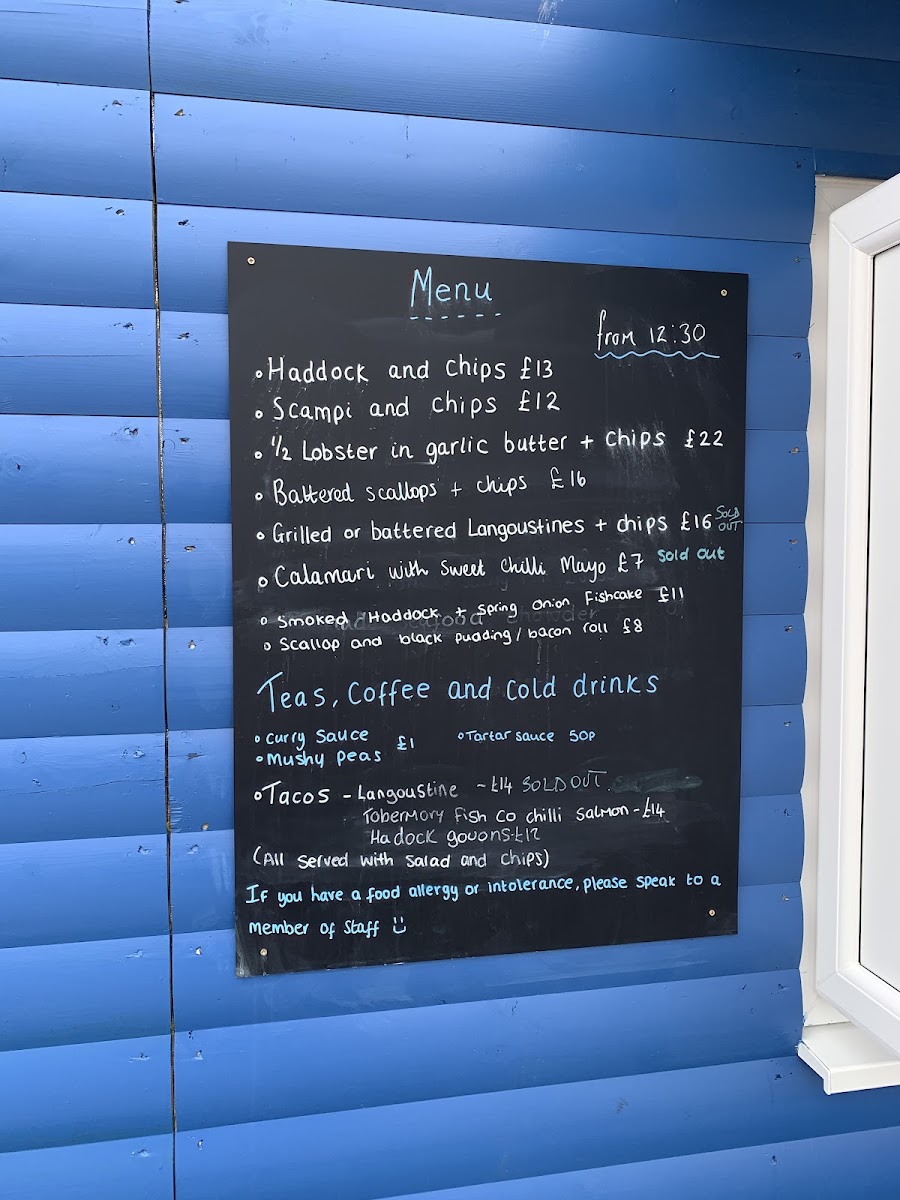 Menu
from 12:30
Haddock and chips £13
Scampi and chips £12
1/2 Lobster in garlic butter + chips £22
Battered scallops + chips £16
Grilled or battered Langoustines + chips £16 SOLD OUT
Calamari with Sweet Chilli Mayo £7 Sold out
Smoked Haddock + spring onion Fishcake £11
Scallop and black pudding/bacon roll £8
Teas, Coffee and Cold drinks
Curry Sauce
Mushy Peas £1
Tartar sauce 50p
Tacos - Langoustine - £14 SOLD OUT.
Tobermory Fish Co chilli salmon - £14
Hadock gouons-£12
(All served with salad and chips)
If you have a food allergy or intolerance, please speak to a
member of staff